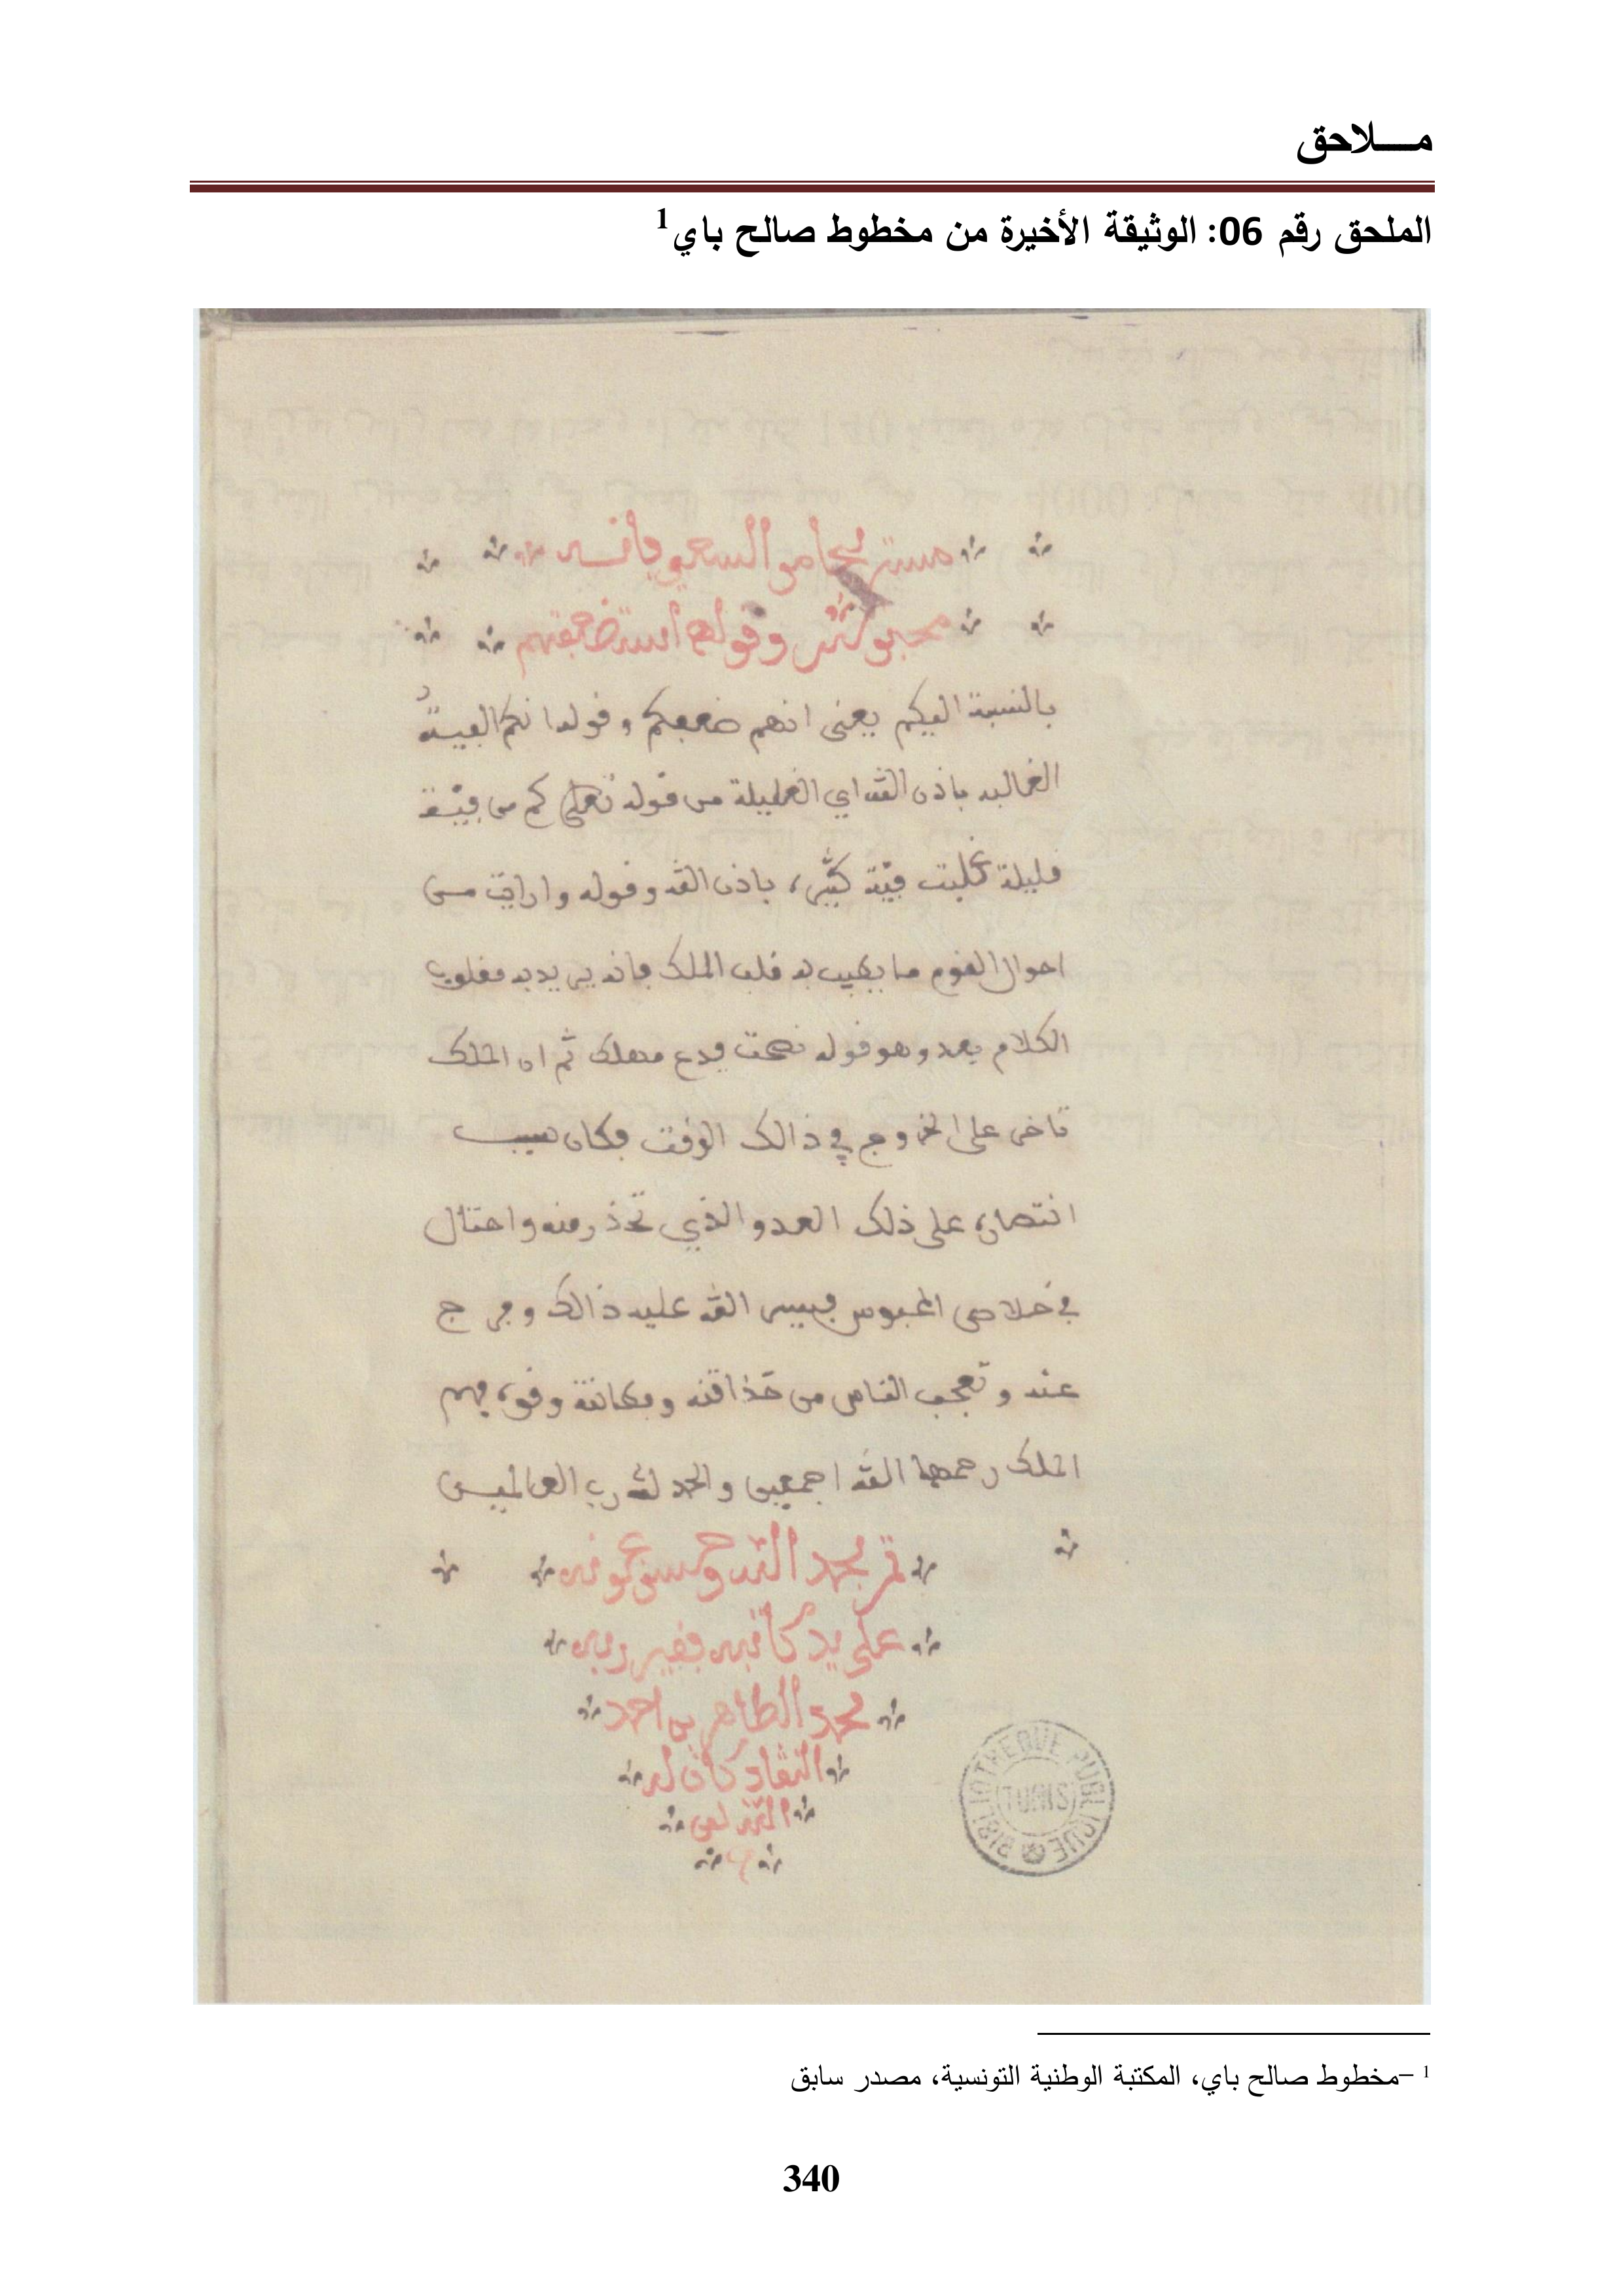 مـــلاحق
الملحق رقم 06: الوثيقة الأخيرة من مخطوط صالح باي1
وقوله استضعفتهم
بالنسبة اليكم يعنى انهم ضعفكم وقوله انكم الفية
الغالبه باذن الله اي القليلة من قوله تعلى كم من فيئة
قليلة غلبت فيئة كثيرة باذن الله وقوله وارايت من
احوال القوم ما يطيب به قلب الملك فانه يريد به مقلوب
الكلام بعد وهو قوله نصحت فدع مهلك ثم ان الملك
تاخر على الخروج في ذالك الوقت فكان سبب
انتصاره على ذلك العدو الذي تحذر منه واحتال
في خلاص المحبوس فيسر الله عليه ذالك وفرج
عنه وتعجب الناس من حذاقته ومكانته وقوة فهم
الملك رحمهما الله اجمعين والحمد لله رب العالمين
تم بحمد الله وحسن عونه
على يد كاتبه فقير ربه
محمد الطاهر بن احمد
النقاد كان له
الله
BIBLIOTHEQUE PUBLIQUE
TUNIS
1 –مخطوط صالح باي، المكتبة الوطنية التونسية، مصدر سابق
340